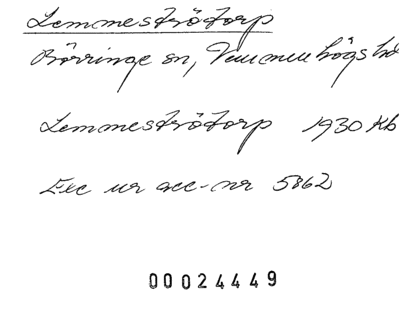 Lemmeströtorp
Börringe sn, Vemmenhögs hd
Lemmeströtorp 1930 Kb
Exc ur acc-nr 5862
00024449